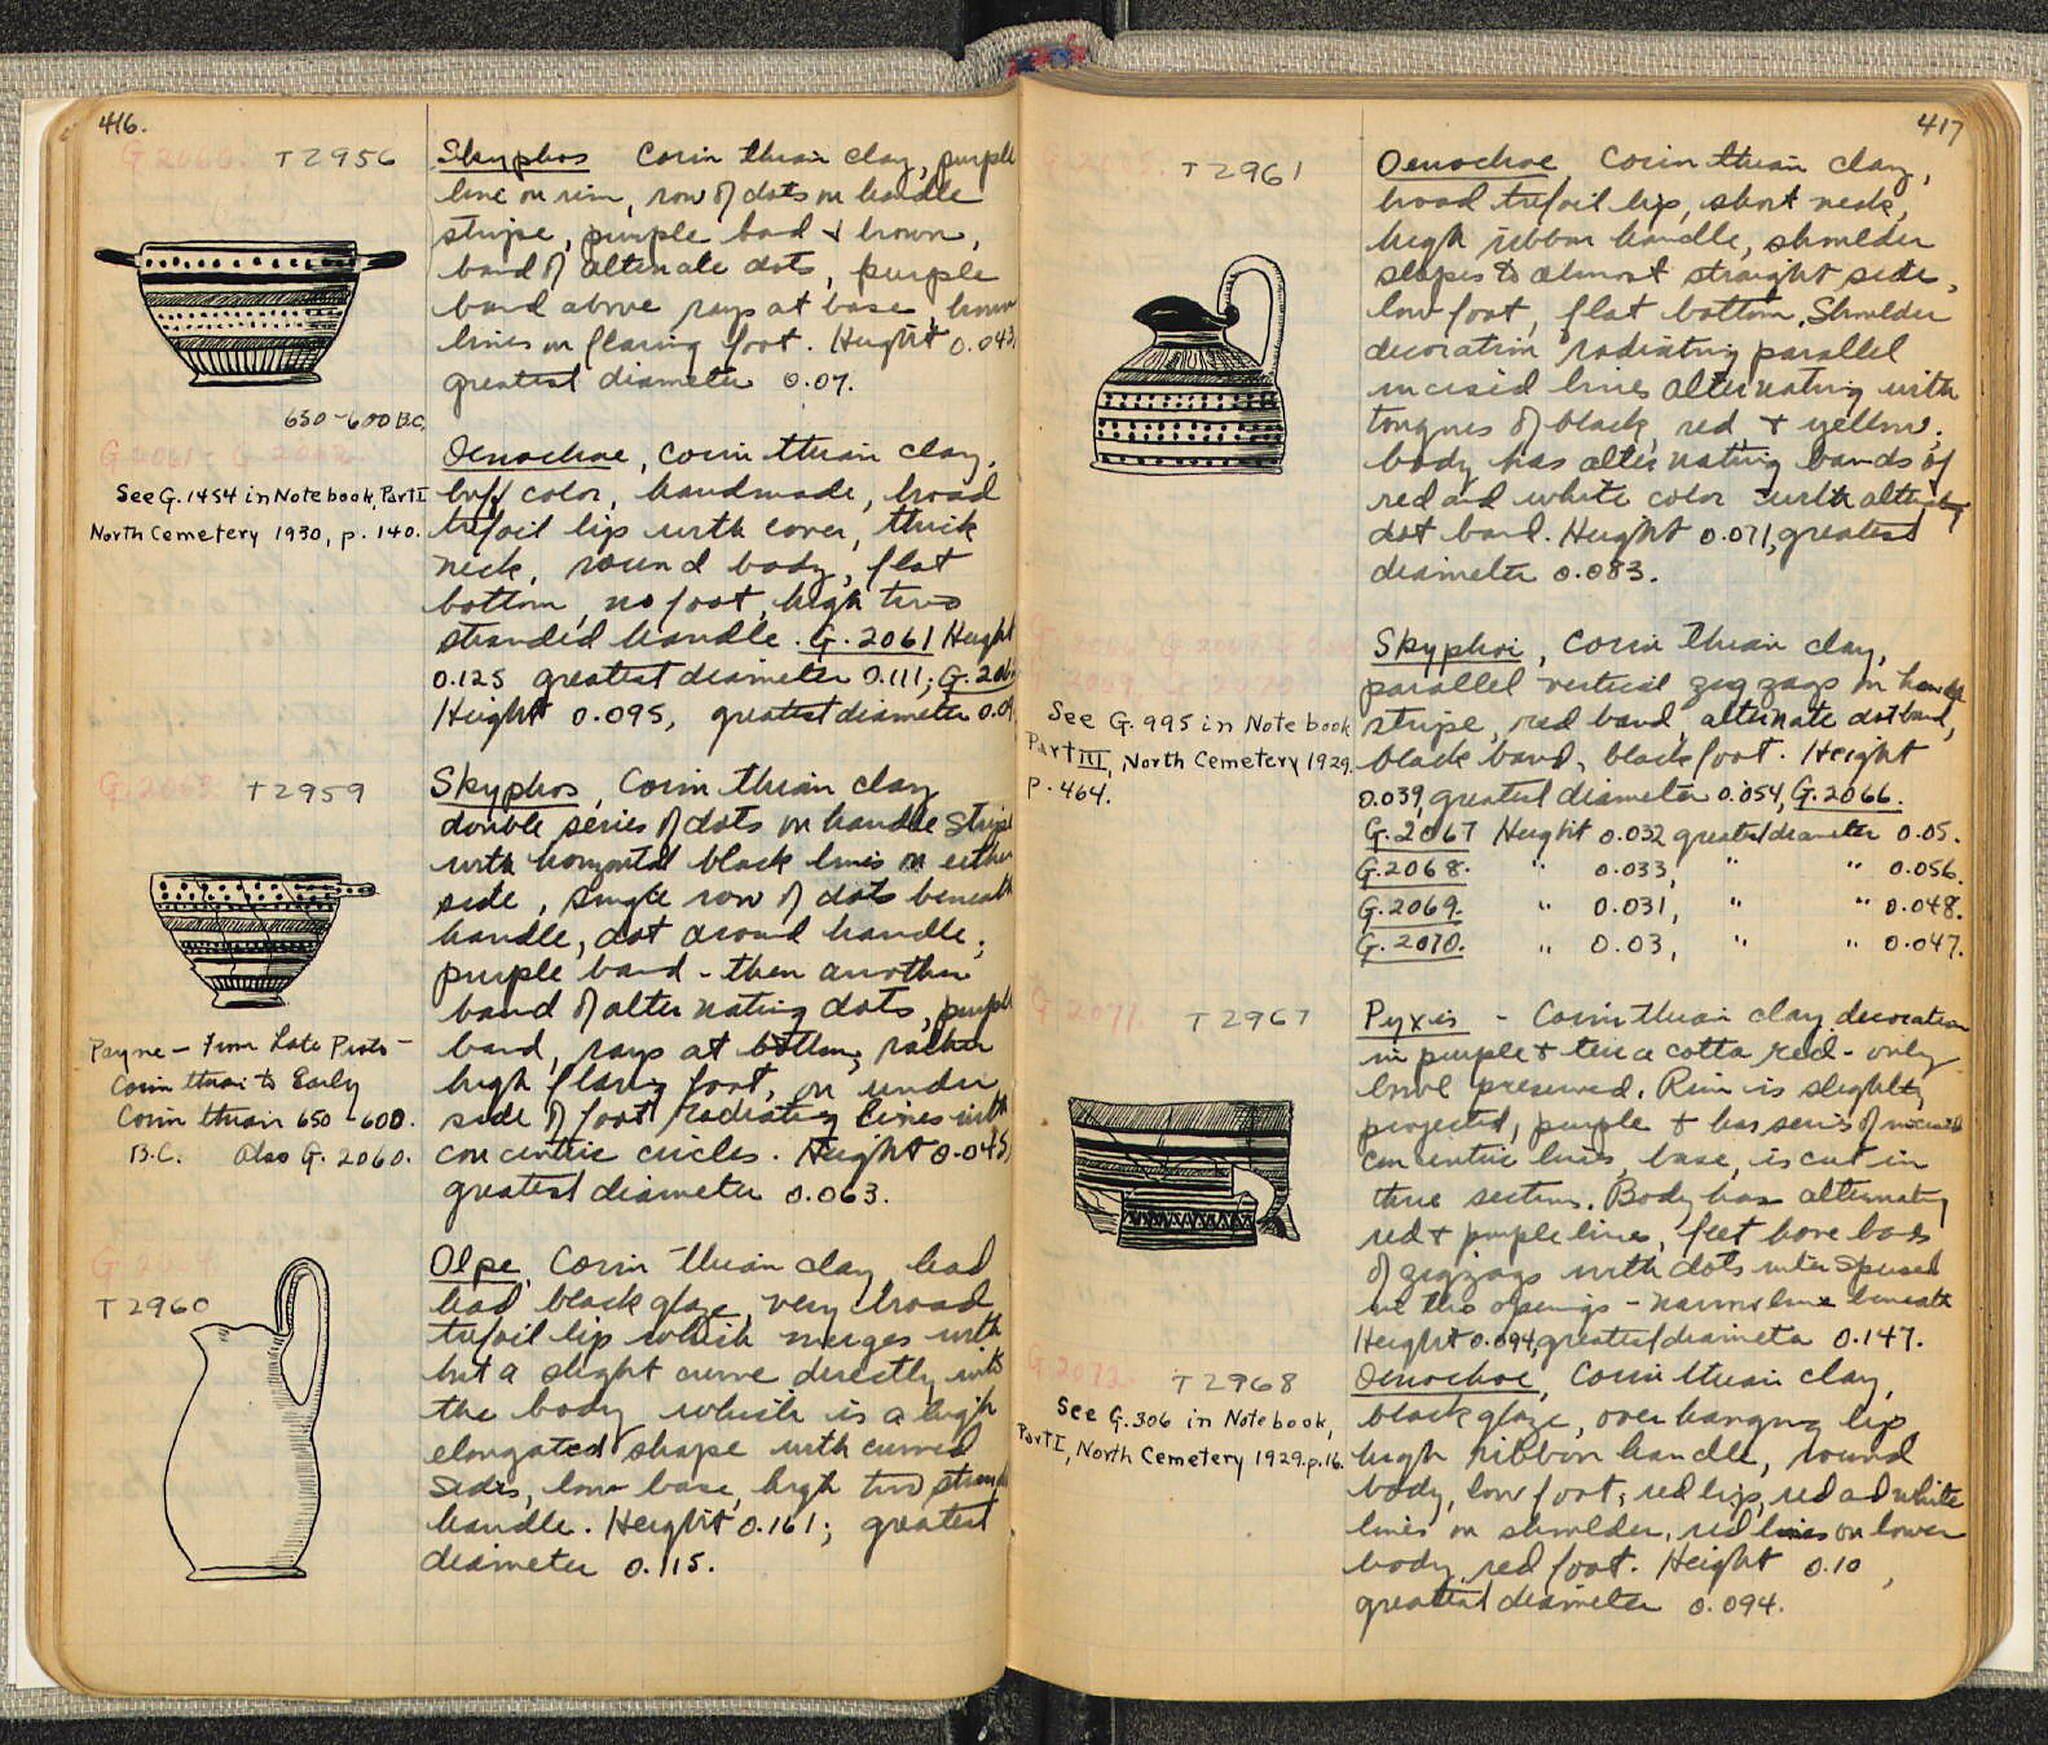 416.
G 2060. T 2956
Skyphos Corinthian clay, purple
line on rim, row of dots on handle
stripe, purple band & brown,
band of alternate dots, purple
band above rays at base, brown
lines on flaring foot. Height 0.043,
greatest diameter 0.07.
650-600 B.C.
G 2061 - G 2062
See G. 1454 in Notebook, Part I
North Cemetery 1930, p. 140.
Oenochoe, Corinthian clay,
buff color, handmade, broad
trefoil lip with cover, thick
neck, round body, flat
bottom, no foot, high two
stranded handle. G. 2061 Height
0.125 greatest diameter 0.111; G. 206
Height 0.095, greatest diameter 0.09
G. 2063. T 2959
Skyphos, Corinthian clay
double series of dots on handle stripe
with horizontal black lines on either
side, single row of dots beneath
handle, dot around handle;
purple band - then another
band of alternating dots, purple
band, rays at bottom, rather
high flaring foot, on under
side of foot radiating lines with
concentric circles. Height 0.045,
greatest diameter 0.063.
Payne - From Late Proto-
Corinthian to Early
Corinthian 650-600.
B.C. Also G. 2060.
G. 2064.
T 2960
Olpe, Corinthian clay, had
had black glaze, very broad
trefoil lip which merges with
but a slight curve directly into
the body which is a high
elongated shape with curved
sides, low base, high two strand
handle. Height 0.161; greatest
diameter 0.115.
417
G 2065. T 2961
Oenochoe, Corinthian clay,
broad trefoil lip, short neck,
high ribbon handle, shoulder
slopes to almost straight side,
low foot, flat bottom. Shoulder
decoration radiating parallel
incised lines alternating with
tongues of black, red & yellow;
body has alternating bands of
red and white color with alternating
dot band. Height 0.071, greatest
diameter 0.083.
See G. 995 in Notebook
Part III, North Cemetery 1929.
p. 464.
Skyphoi, Corinthian clay,
parallel vertical zigzags on handle
stripe, red band, alternate dot band,
black band, black foot. Height
0.039, greatest diameter 0.054, G. 2066.
G. 2067 Height 0.032 greatest diameter 0.05.
G. 2068. " 0.033, " " 0.056.
G. 2069. " 0.031, " " 0.048.
G. 2070. " 0.03, " " 0.047.
G 2071. T 2967
Pyxis - Corinthian clay decoration
in purple & terra cotta red - only
bowl preserved. Rim is slightly
projected, purple & has series of incised
concentric lines, base, is cut in
three sections. Body has alternating
red & purple lines, feet have bands
of zigzags with dots interspersed
in the openings - narrow line beneath
Height 0.094, greatest diameter 0.147.
G 2072. T 2968
See G. 306 in Notebook,
Part I, North Cemetery 1929. p. 16.
Oenochoe, Corinthian clay,
black glaze, over hanging lip,
high ribbon handle, round
body, low foot; red lip, red and white
lines on shoulder, red lines on lower
body, red foot. Height 0.10,
greatest diameter 0.094.